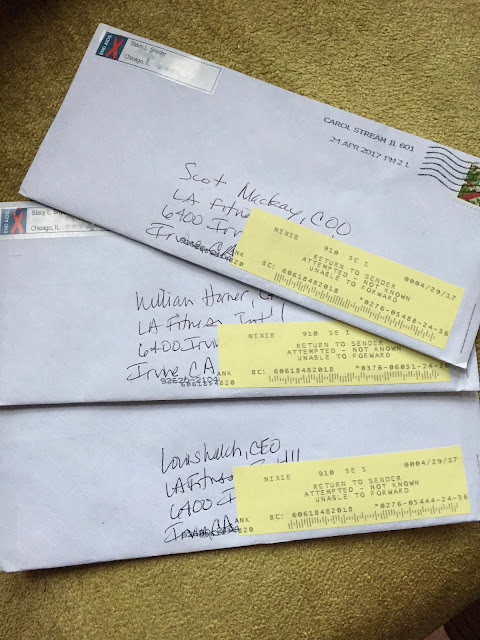 END AIDS
Stacy L. Snyder
Chicago, IL
CAROL STREAM IL 601
24 APR 2017 PM 2 L
Scot Mackay, COO
LA Fitness
6400 Irvine
Irvine, CA
NIXIE 910 SC 1 0004/29/17
RETURN TO SENDER
ATTEMPTED - NOT KNOWN
UNABLE TO FORWARD
BC: 60618482018 *0276-05488-24-36
END AIDS
Stacy L.
Chicago, IL
William Horner,
LA Fitness Int'l
6400 Irvine
Irvine, CA
92620-5104
ANK
NIXIE 910 SE 1 0004/29/17
RETURN TO SENDER
ATTEMPTED - NOT KNOWN
UNABLE TO FORWARD
BC: 60618482018 *0376-06031-24-36
Louis Welch, CEO
LA Fitness Int'l
6400 I
Irvine, CA
ANK
NIXIE 910 SE 1 0004/29/17
RETURN TO SENDER
ATTEMPTED - NOT KNOWN
UNABLE TO FORWARD
BC: 60618482018 *0276-05444-24-36